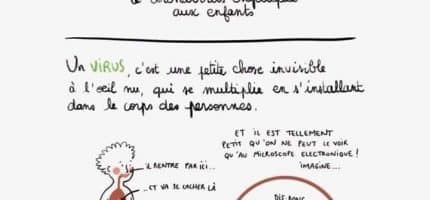 aux enfants
Un VIRUS, c'est une petite chose invisible
à l'œil nu, qui se multiplie en s'installant
dans le corps des personnes.
ET IL EST TELLEMENT
PETIT QU'ON NE PEUT LE VOIR
QU'AU MICROSCOPE ELECTRONIQUE !
IMAGINE...
...IL RENTRE PAR ICI...
...ET VA SE CACHER LÀ